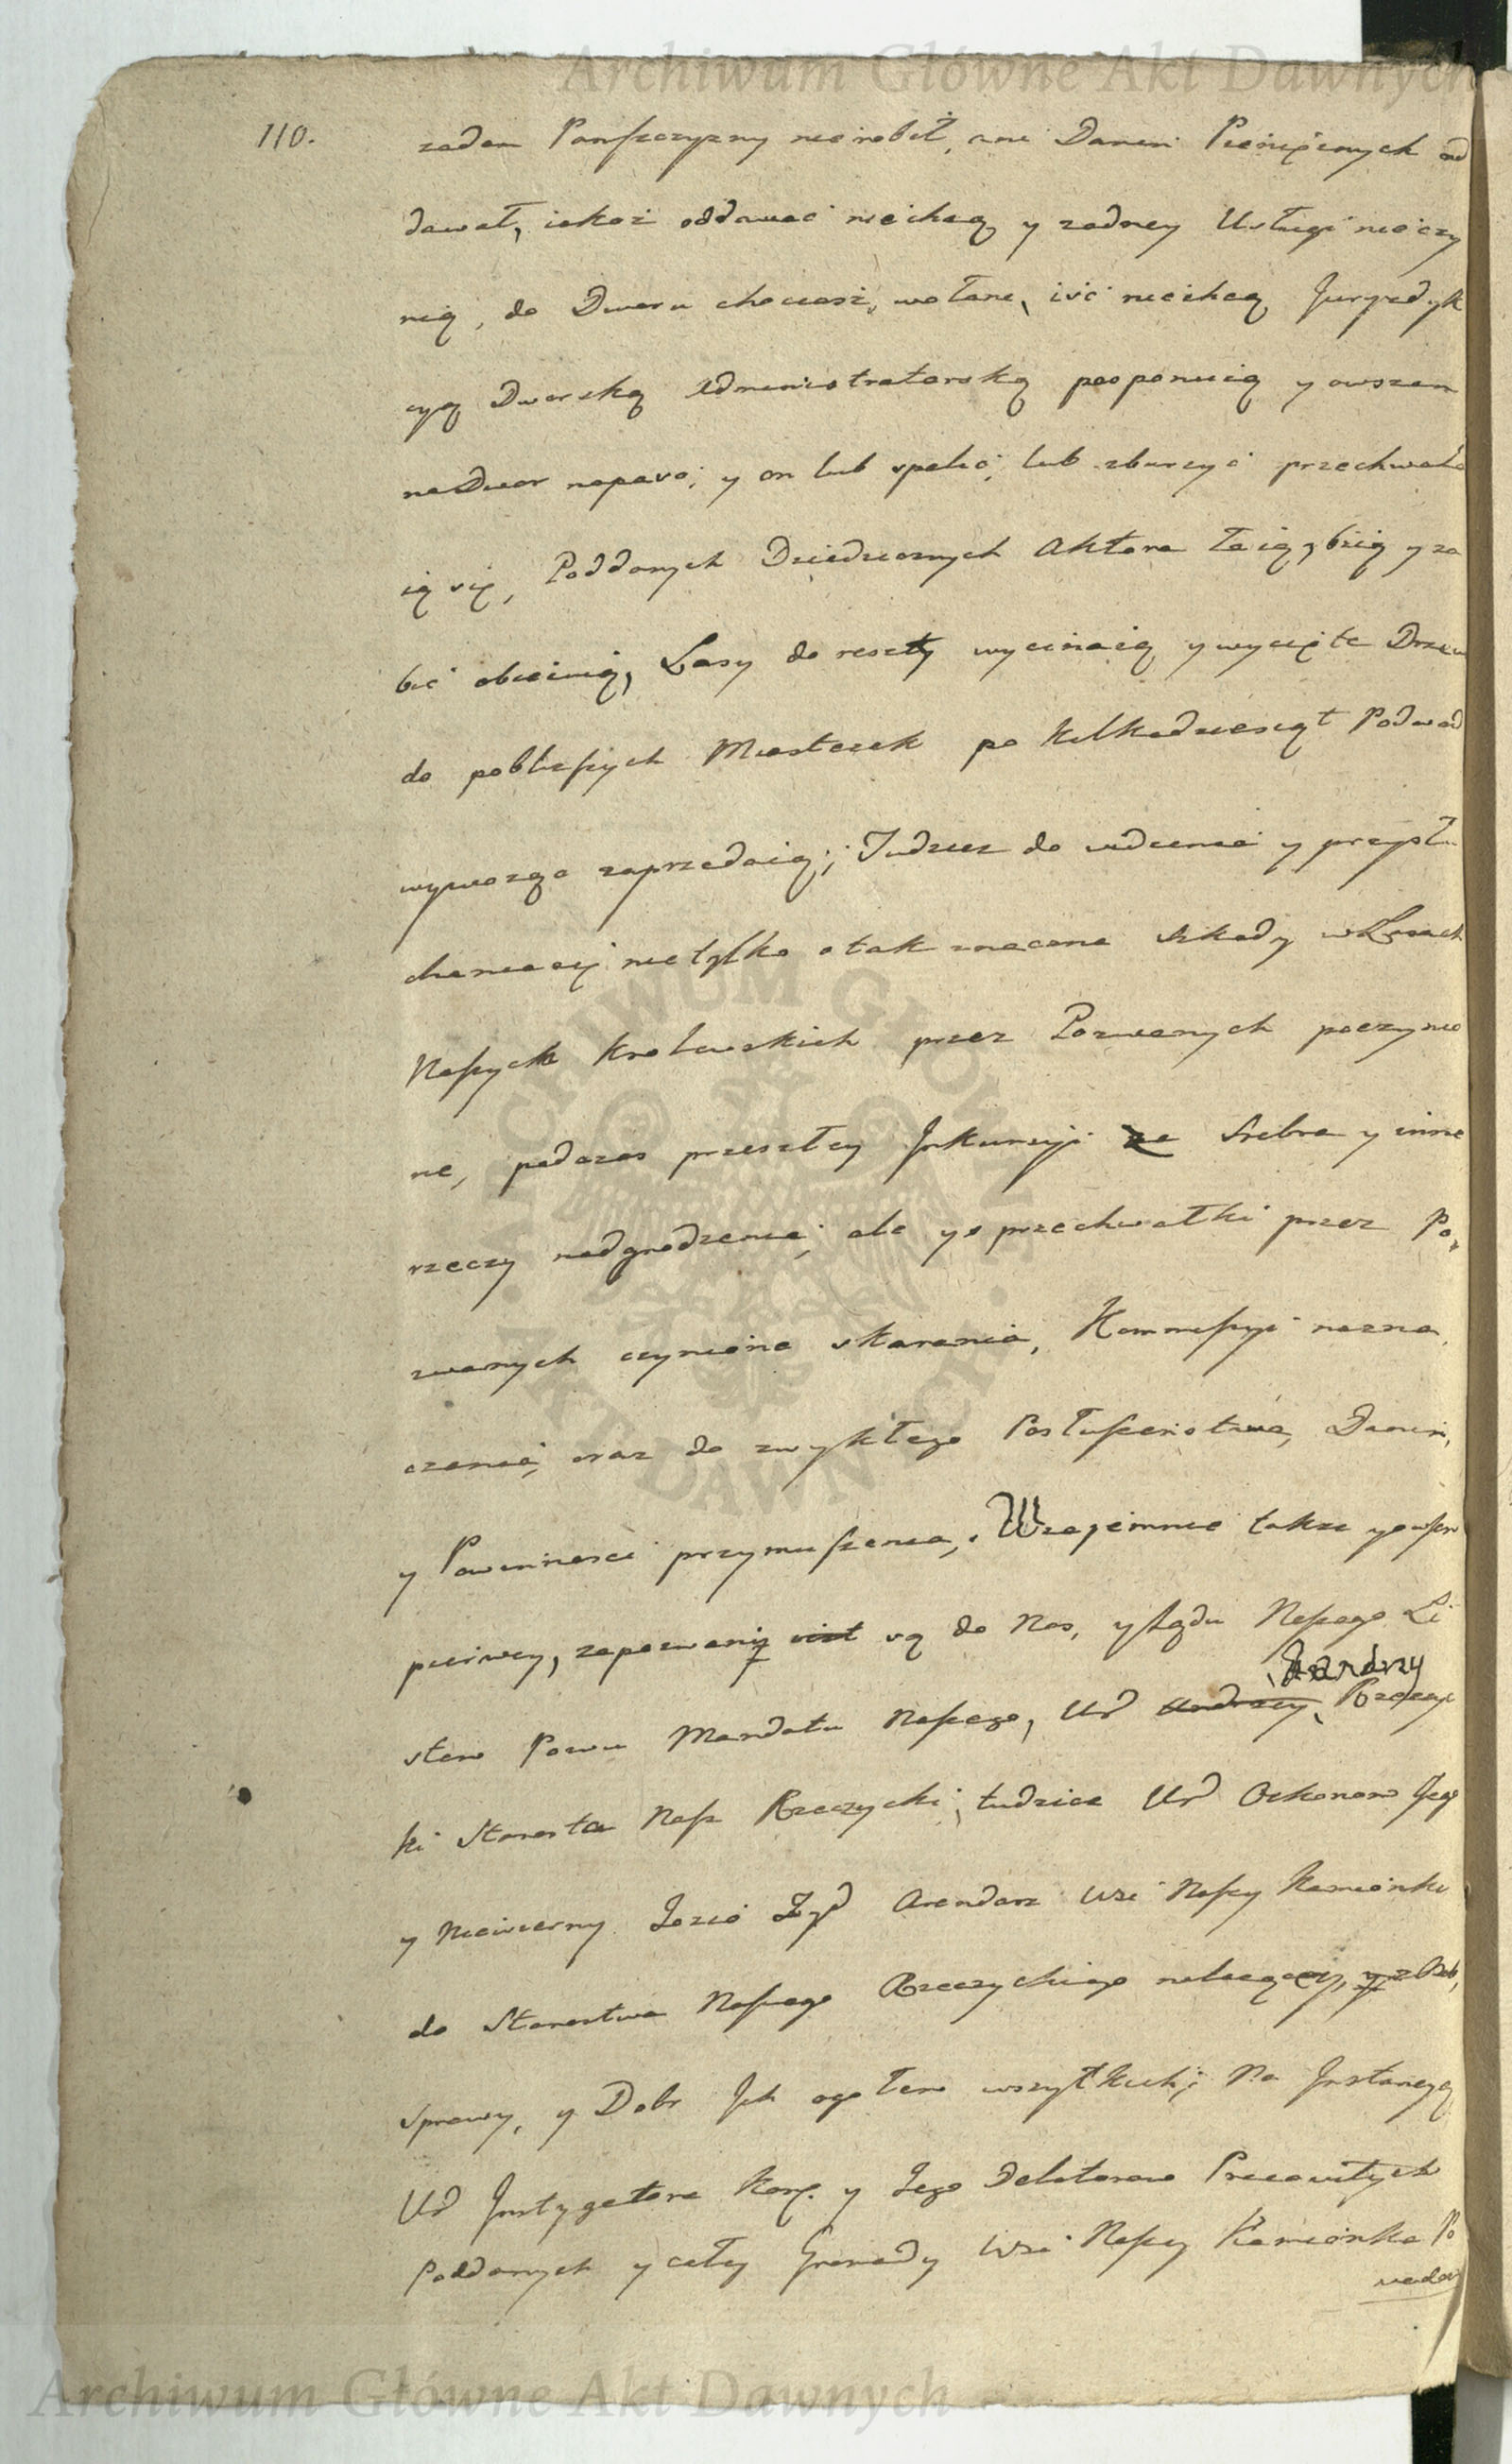 Archiwum Główne Akt Dawnych
110.
zaden Panszczyzny nie robił, ani Danin Pieniężnych od
dawał, iakoż oddawać niechcą y zadney Usługi nie czy
nią, do Dworu chociasz wołane, iść niechcą Juryzdyk
cyą Dworską Administratorską posponuią y owszem
na Dwor napaść, y on lub spalić, lub zburzyć przechwala
ią się, Poddanych Dziedzicznych Aktora łaią, biią y za
bić obiecuią, Lasy do reszty wycinaią y wycięte Drzewo
do pobliszych Miasteczek po Kilkadziesiąt Podwod
wywożąc zaprzedaią; Tudziez do widzenia y przysłu
chania się nie tylko o tak znaczne szkody w Lasach
Naszych Krolewskich przez Pozwanych poczynio
ne, podczas przeszłey Inkursyi za Srebra y inne
rzeczy nadgrodzenia, ale y o przechwałki przez Po
zwanych czynione skarania, Kommissyi nazna
czenia, oraz do zwykłego Posłuszenstwa, Danin,
y Powinnosci przymuszenia, Wzaiemnie także y
pierwey, zapozwani są do Nas, y Sądu Naszego Li
stem Pozwu Mandatu Naszego, Ur Jendrzy Rzeczyc
ki Starosta Nasz Rzeczycki, tudziez Ur Oekonom Jego
y Niewierny Jozio Zyd Arendarz Wsi Naszy Kamionki
do Starostwa Naszego Rzeczyckiego należący, z Osob,
Sprawy, y Dobr Ich ogołem wszytkich; Na Instancyą
Ur Instygatora Kor. y Jego Delatorow Pracowitych
Poddanych y całey Gromady Wsi Naszy Kamionka Po
CHIWUM GŁÓWNE
AKT DAWNYCH
Archiwum Główne Akt Dawnych